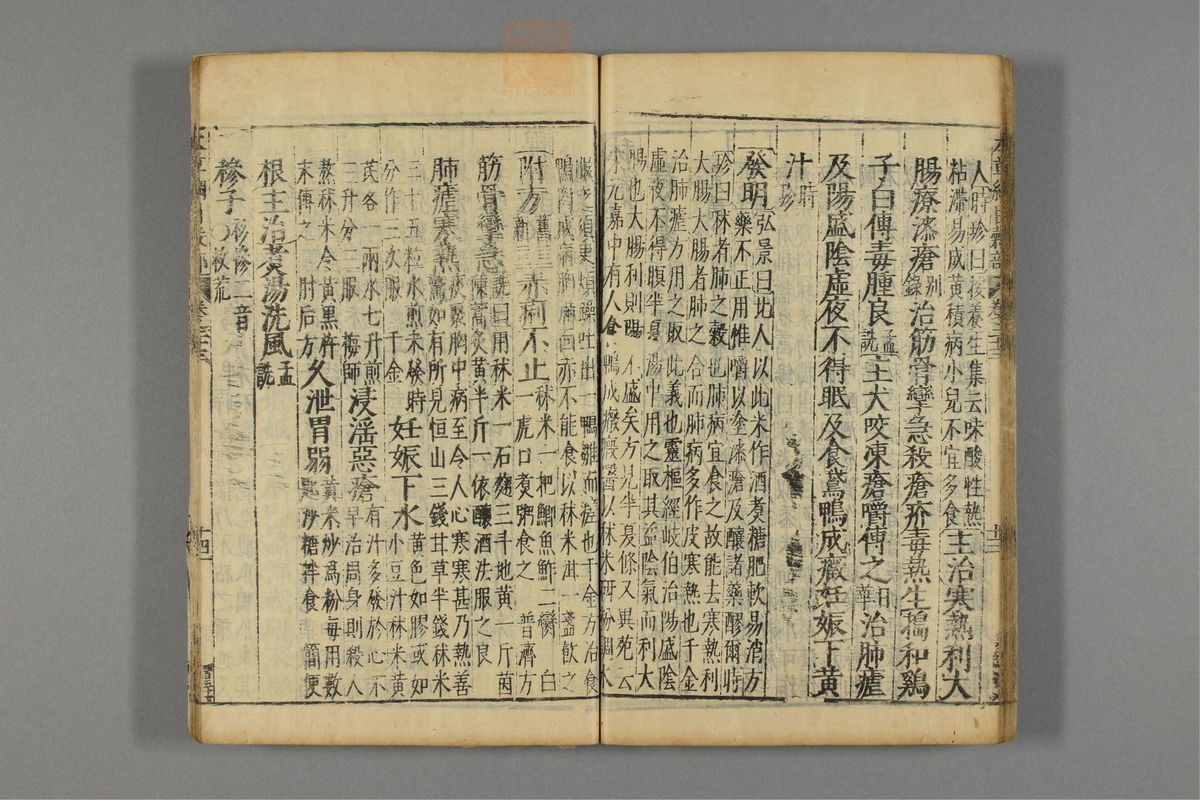 人時珍曰按養生集云味酸性熱
粘滯易成黃積病小兒不宜多食主治寒熱利大
腸療漆瘡別錄治筋骨攣急殺瘡疥毒熱生擣和鷄
子白傅毒腫良孟詵主犬咬凍瘡嚼傅之日華治肺瘧
及陽盛陰虛夜不得眠及食鵞鴨成癥妊娠下黃
汁時珍
發明弘景曰此人以此米作酒煑糖肥軟易消方
藥不正用惟嚼以塗漆瘡及釀諸藥醪爾時
珍曰秫者肺之穀也肺病宜食之故能去寒熱利
大腸大腸者肺之合而肺病多作皮寒熱也千金
治肺瘧方用之取此義也靈樞經岐伯治陽盛陰
虛夜不得瞑半夏湯中用之取其益陰氣而利大
腸也大腸利則陽不盛矣方見半夏條又異苑云
宋元嘉中有人食鴨成癥瘕醫以秫米研粉調水
服之須臾煩躁吐出一鴨雛而瘥也千金方治食
鴨肉成病胸滿面赤不能食以秫米泔一盞飲之
附方舊三新三赤痢不止秫米一把鯽魚鮓二臠白
一虎口煑粥食之普濟方
筋骨攣急詵曰用秫米一石麴三斗地黃一斤茵
陳蒿炙黃半斤一依釀酒法服之良
肺瘧寒熱痰聚胸中病至令人心寒寒甚乃熱善
驚如有所見恒山三錢甘草半錢秫米
三十五粒水煎未發時
分作三次服千金妊娠下水黃色如膠或如
小豆汁秫米黃
芪各一兩水七升煎
三升分三服梅師浸淫惡瘡有汁多發於心不
早治周身則殺人
熬秫米令黃黑杵
末傅之肘后方久泄胃弱黃米炒爲粉每用數
匙沙糖拌食簡便
根主治煑湯洗風孟詵
穇子衫慘二音○救荒